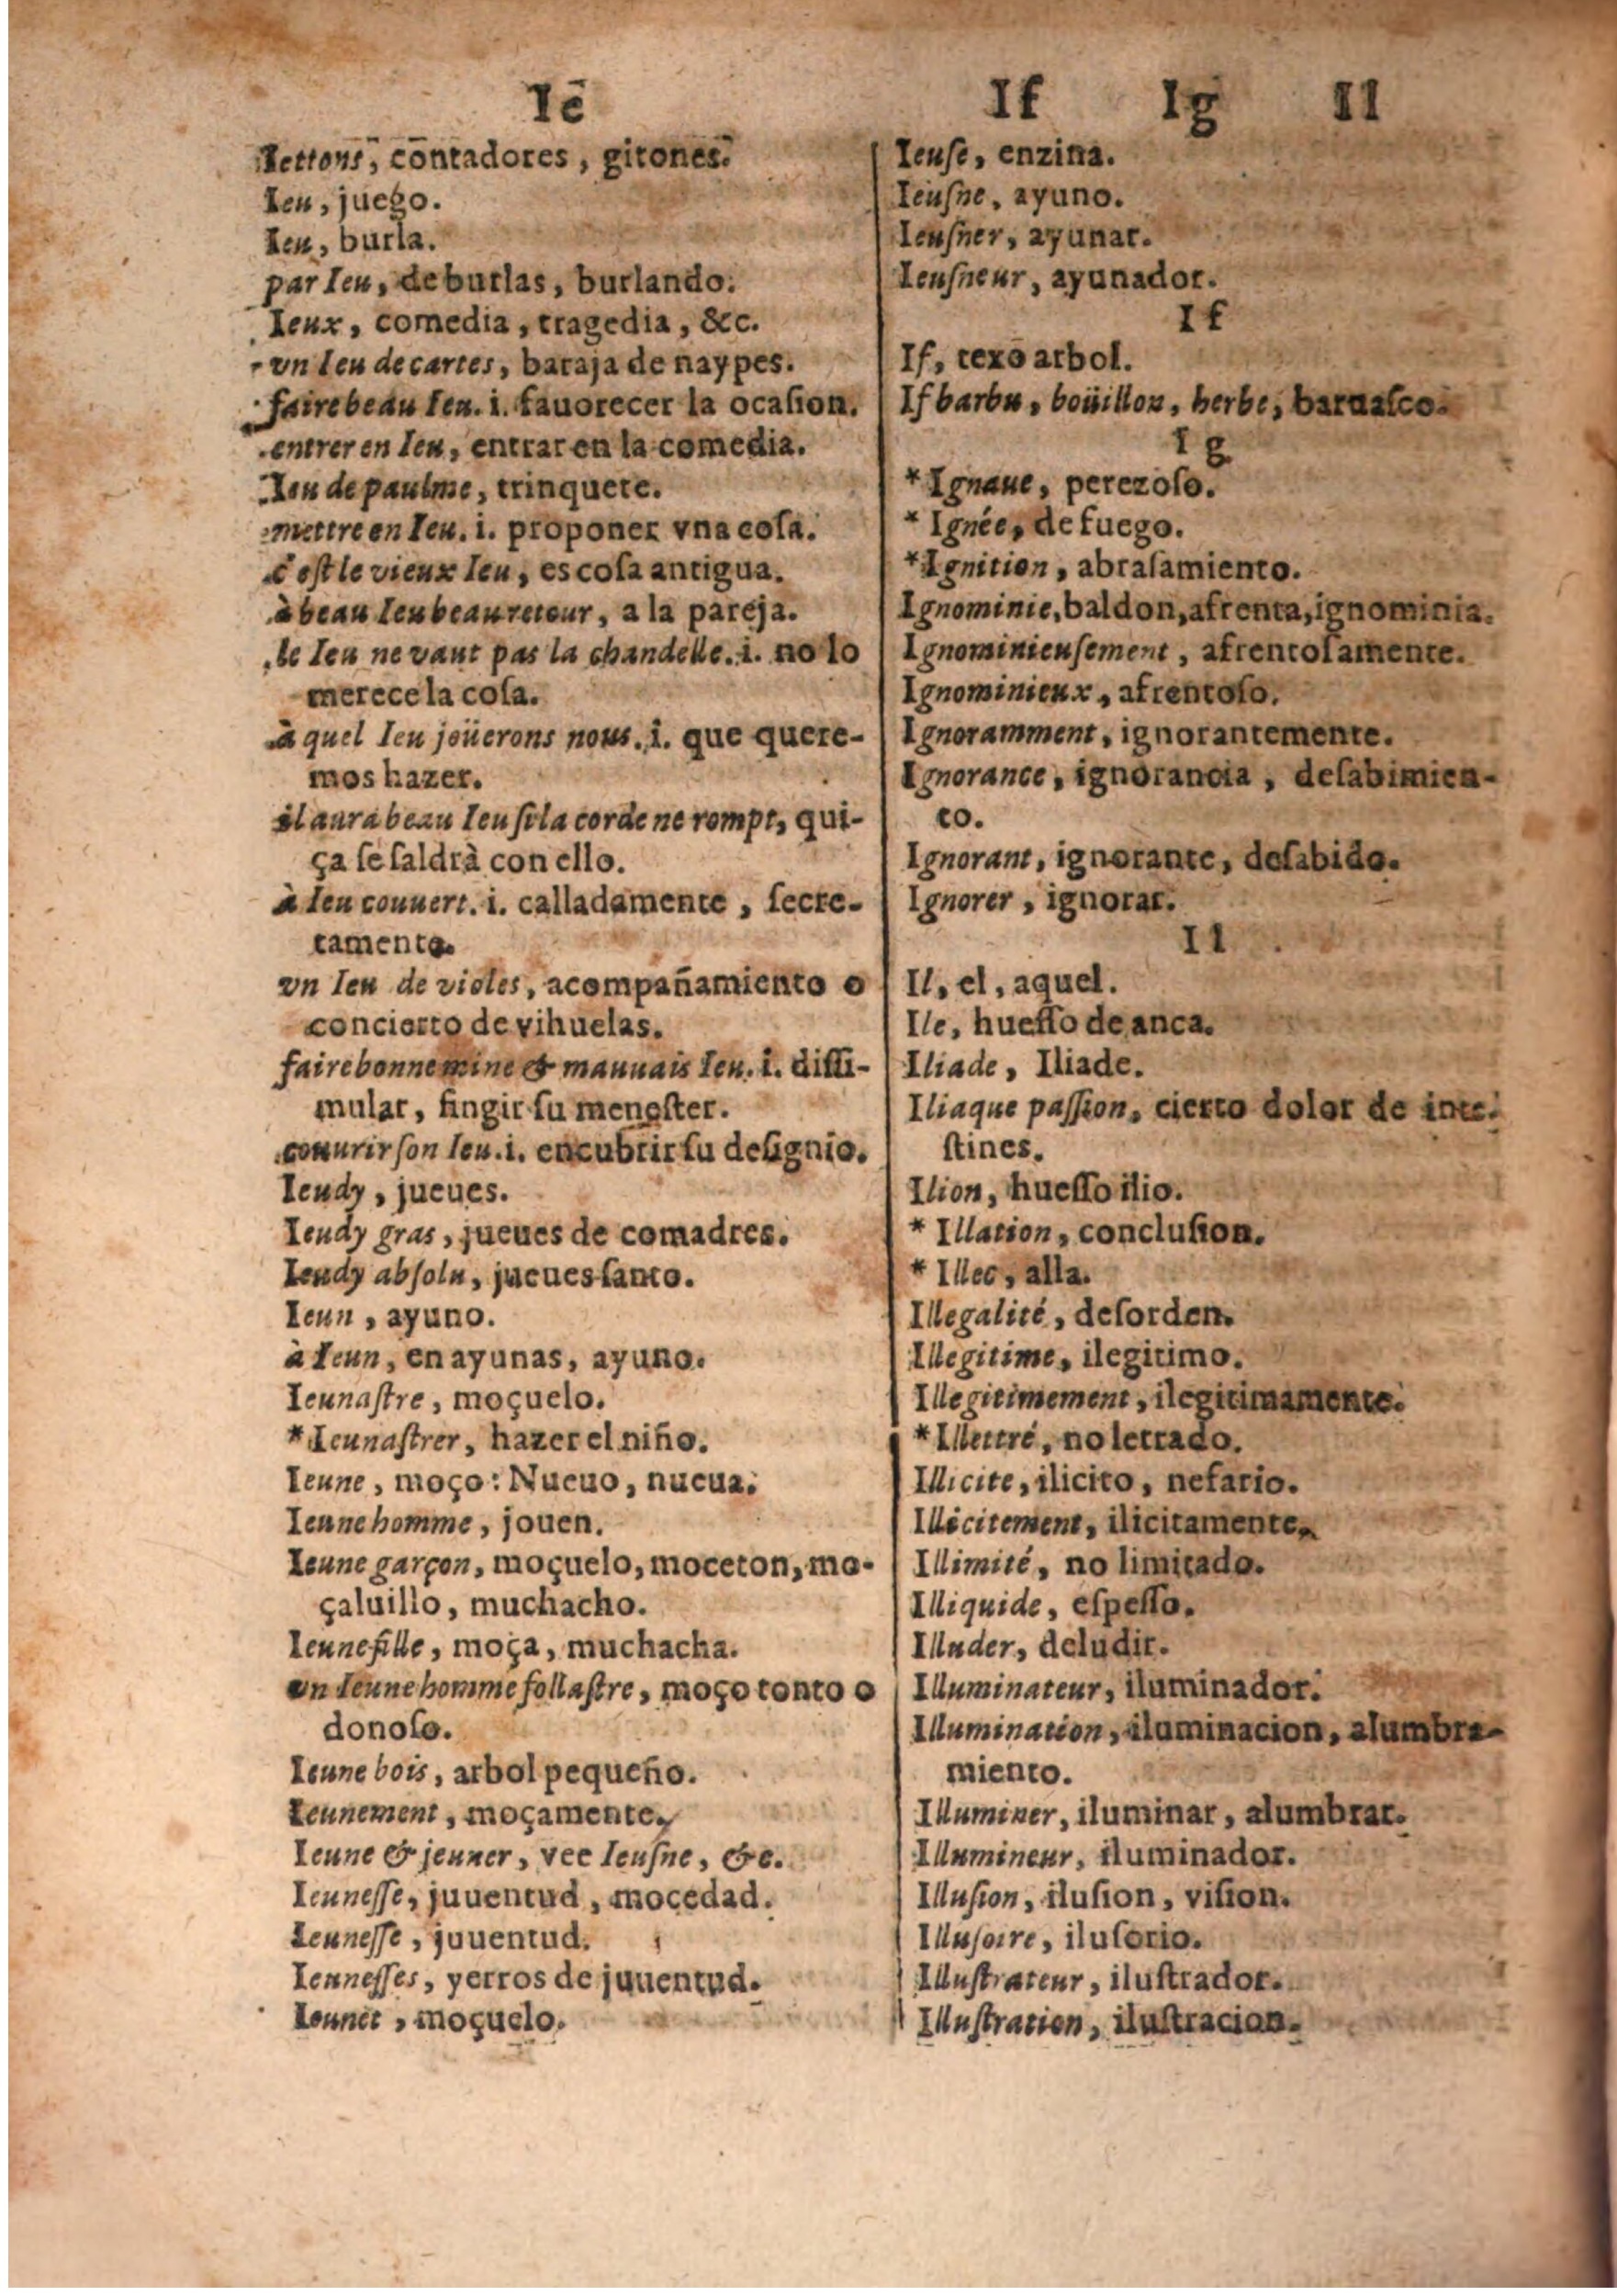 Ie
Iettons, contadores, gitones.
Ieu, juego.
Ieu, burla.
par Ieu, de burlas, burlando.
Ieux, comedia, tragedia, &c.
vn Ieu de cartes, baraja de naypes.
faire beau Ieu. i. fauorecer la ocaſion.
entrer en Ieu, entrar en la comedia.
Ieu de paulme, trinquete.
mettre en Ieu. i. proponer vna coſa.
c'eſt le vieux Ieu, es coſa antigua.
à beau Ieu beau retour, a la pareja.
le Ieu ne vaut pas la chandelle. i. no lo
merece la coſa.
à quel Ieu joüerons nous. i. que quere-
mos hazer.
il aura beau Ieu ſi la corde ne rompt, qui-
ça ſe ſaldrà con ello.
à Ieu couuert. i. calladamente, ſecre-
tamente.
vn Ieu de violes, acompañamiento o
concierto de vihuelas.
faire bonne mine & mauuais Ieu. i. diſſi-
mular, fingir ſu meneſter.
couurir ſon Ieu. i. encubrir ſu deſignio.
Ieudy, jueues.
Ieudy gras, jueues de comadres.
Ieudy abſolu, jueues ſanto.
Ieun, ayuno.
à Ieun, en ayunas, ayuno.
Ieunaſtre, moçuelo.
* Ieunaſtrer, hazer el niño.
Ieune, moço: Nueuo, nueua.
Ieune homme, jouen.
Ieune garçon, moçuelo, moceton, mo-
çaluillo, muchacho.
Ieune fille, moça, muchacha.
vn Ieune homme follaſtre, moço tonto o
donoſo.
Ieune bois, arbol pequeño.
Ieunement, moçamente.
Ieune & jeuner, vee Ieuſne, &c.
Ieuneſſe, juuentud, mocedad.
Ieuneſſe, juuentud.
Ieuneſſes, yerros de juuentud.
Ieunet, moçuelo.
If Ig Il
Ieuſe, enzina.
Ieuſne, ayuno.
Ieuſner, ayunar.
Ieuſneur, ayunador.
If
If, texo arbol.
If barbu, boüillon, herbe, baruaſco.
Ig
* Ignaue, perezoſo.
* Ignée, de fuego.
* Ignition, abraſamiento.
Ignominie, baldon, afrenta, ignominia.
Ignominieuſement, afrentoſamente.
Ignominieux, afrentoſo.
Ignoramment, ignorantemente.
Ignorance, ignorancia, deſabimien-
to.
Ignorant, ignorante, deſabido.
Ignorer, ignorar.
Il
Il, el, aquel.
Ile, hueſſo de anca.
Iliade, Iliade.
Iliaque paſſion, cierto dolor de inte-
ſtines.
Ilion, hueſſo ilio.
* Illation, concluſion.
* Illec, alla.
Illegalité, deſorden.
Illegitime, ilegitimo.
Illegitimement, ilegitimamente.
* Illettré, no letrado.
Illicite, ilicito, nefario.
Illicitement, ilicitamente.
Illimité, no limitado.
Illiquide, eſpeſſo.
Illuder, deludir.
Illuminateur, iluminador.
Illumination, iluminacion, alumbra-
miento.
Illuminer, iluminar, alumbrar.
Illumineur, iluminador.
Illuſion, iluſion, viſion.
Illuſoire, iluſorio.
Illuſtrateur, iluſtrador.
Illuſtration, iluſtracion.